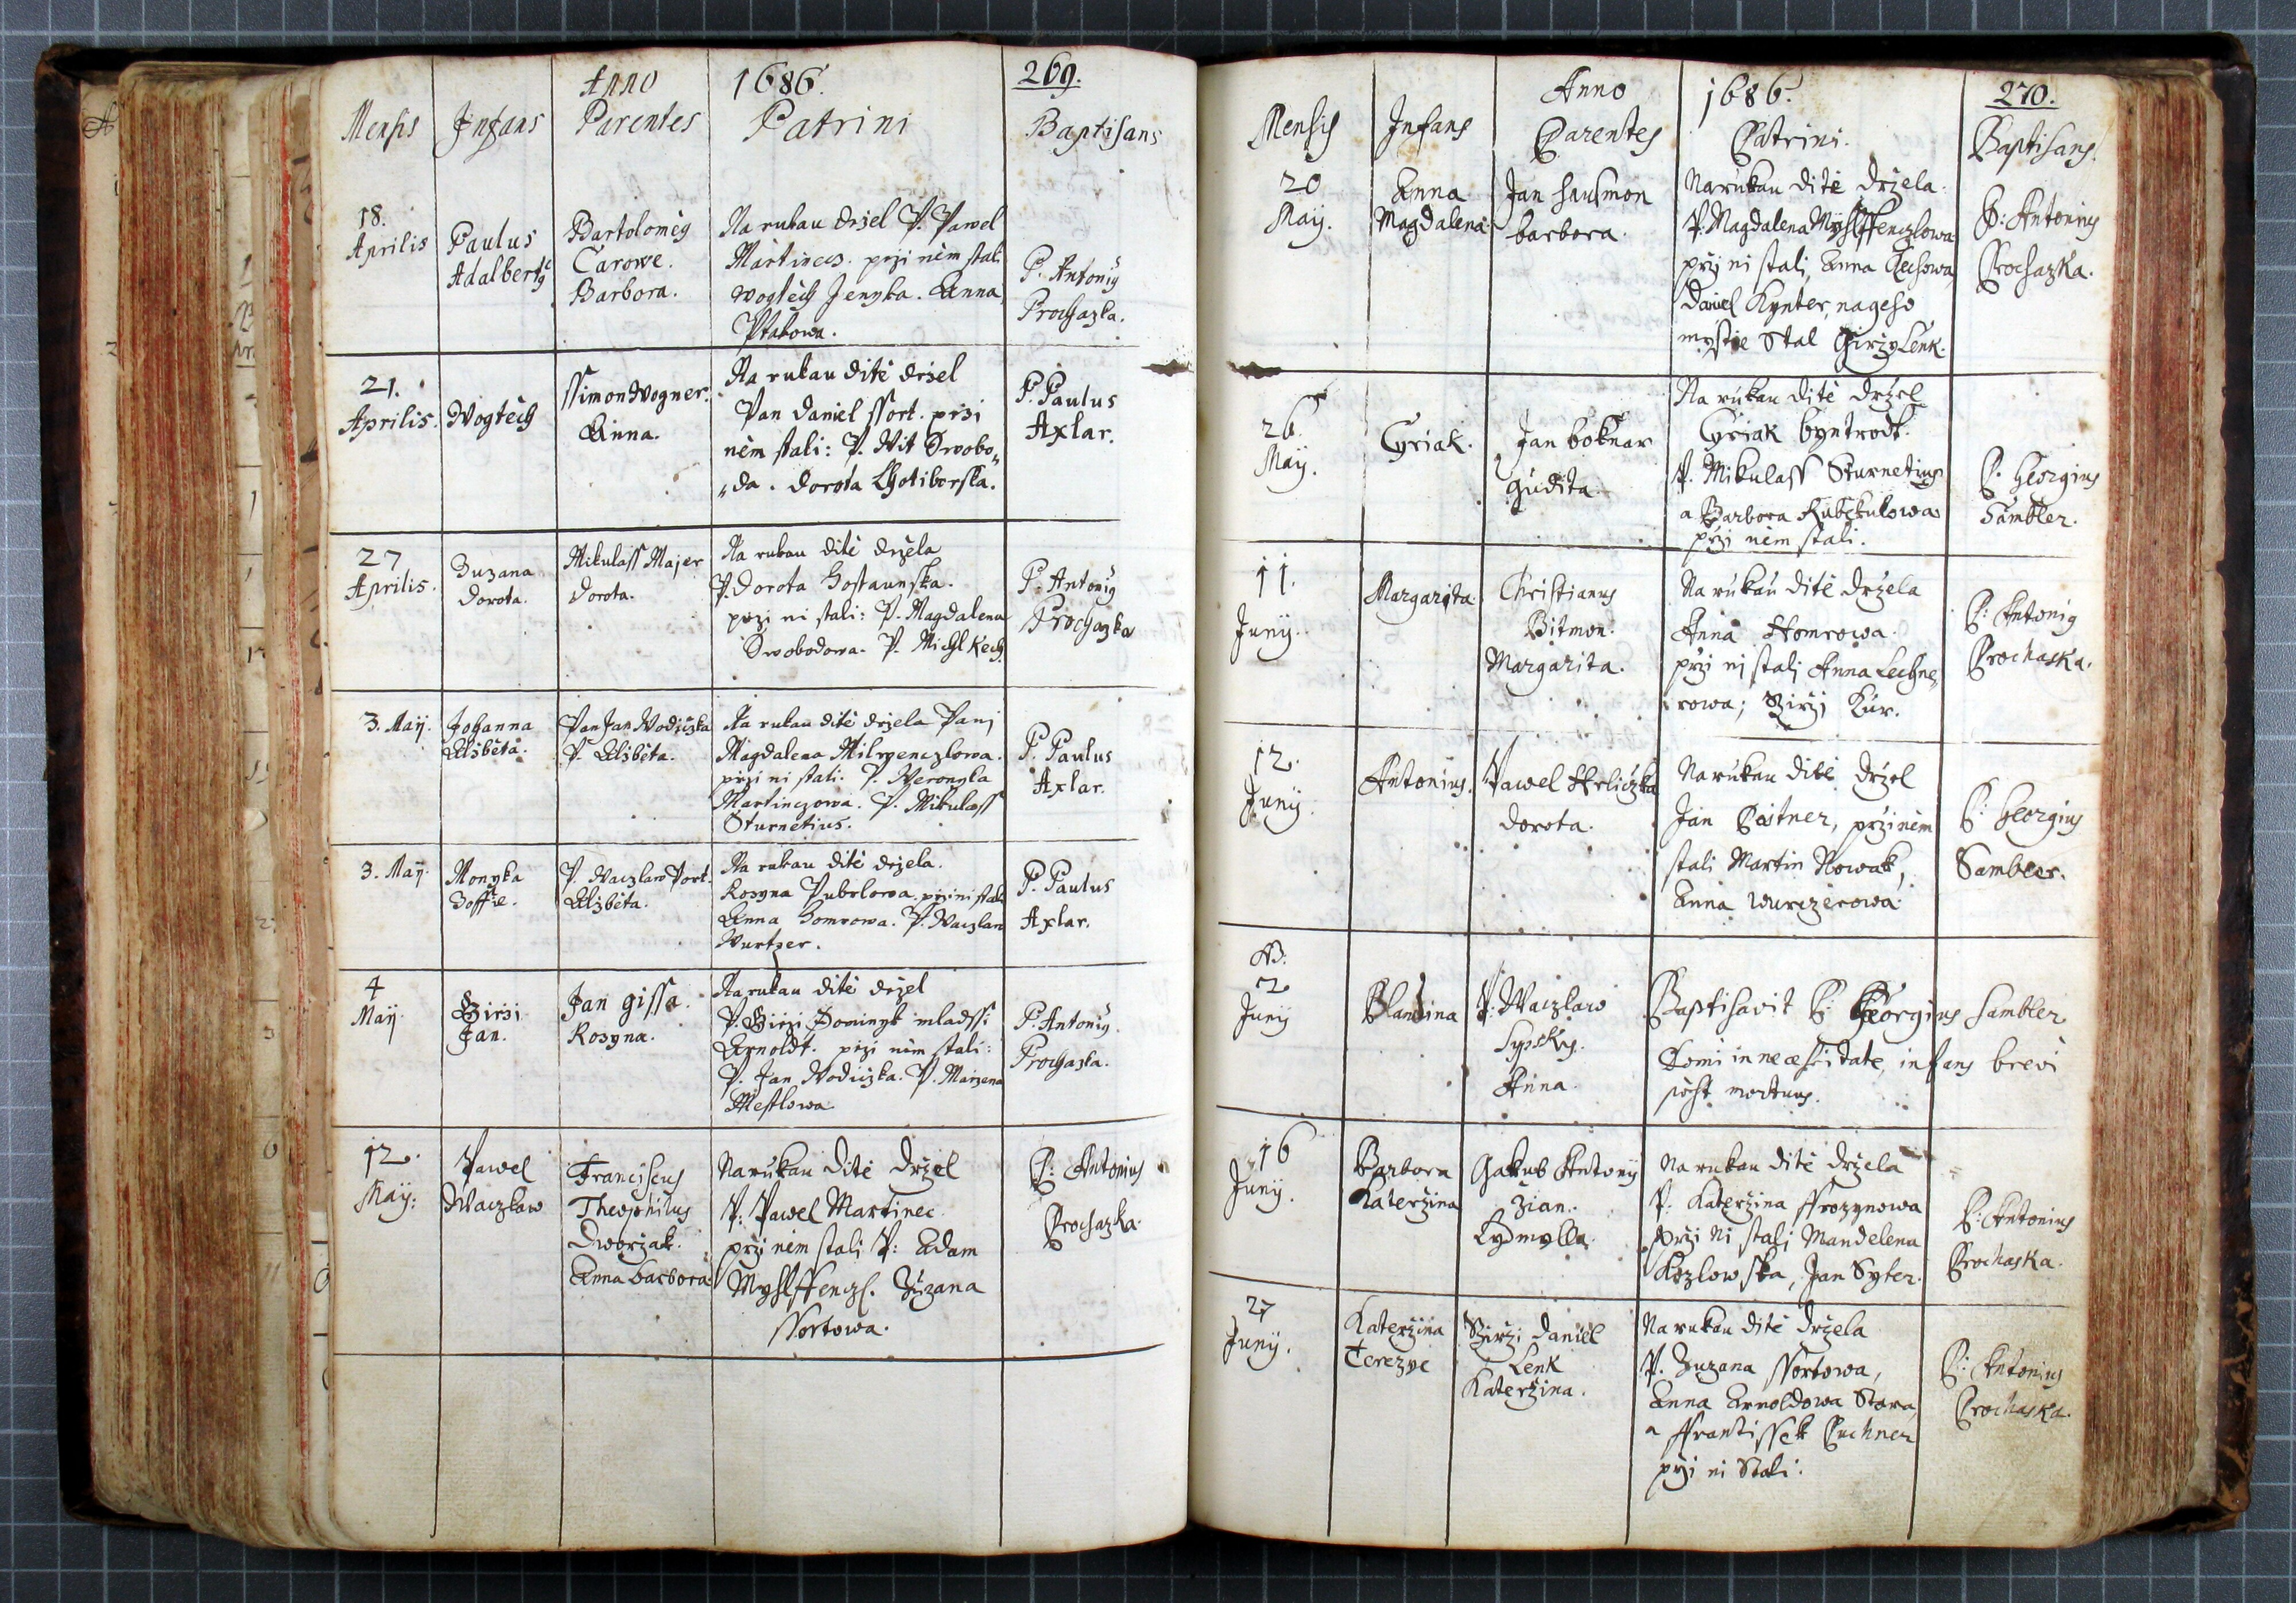 Anno 1686. 269.
Mensis Infans Parentes Patrini Baptisans
18.
Aprilis
Paulus
Adalbertus
Bartolomėg
Carowe.
Barbora.
Na rukau držel P. Pawel
Martinecz. przi něm stali
wogtěch Jenyka. Anna
Ptakowa.
P. Antonig
Prochazka.
21.
Aprilis.
Wogtěch
Ssimon Wogner.
Anna.
Na rukau ditě držel
Pan Daniel Ssort. przi
něm stali: P. Wit Swobo„
„da. Dorota Chotiborska.
P. Paulus
Axlar.
27
Aprilis.
Zuzana
Dorota.
Mikulass Majer
Dorota.
Na rukau ditě držela
P. Dorota Hostaunska.
przi ni stali: P. Magdalena
Swobodowa. P. Michl Kech.
P. Antonig
Prochazka
3. Maij.
Johanna
Alžběta.
Pan Jan Wodiczka
P. Alžběta.
Na rukau ditě držela Pani
Magdalena
przi ni stali. P. Weronyka
Martinczowa. P. Mikulass
Sturnetius.
P. Paulus
Axlar.
3. Maij.
Monyka
Zoffie.
P. Waczlaw Port.
Alžběta.
Na rukau ditě držela.
Rosyna przi ni stali
Anna Homrowa. P. Waczlaw
Wurtzer.
P. Paulus
Axlar.
4
Maij
Girzi
Jan.
Jan gissa.
Rosyna.
Na rukau ditě držel
P. Girzi Dominyk mladssi
Arnoldt. przi něm stali:
P. Jan Wodiczka. P. Marzena
Mestlowa
P. Antonig.
Prochazka.
12.
Maij:
Pawel
Waczlaw
Franciscus
Theophilus
Dworzak.
Anna barbora.
Na rukau Ditě Držel
P: Pawel Martinec.
przi něm stali P: Adam
Myslffenczl. Zuzana
Ssortowa.
P: Antonius
Prochazka.
Anno 1686. 270.
Mensis Infans Parentes Patrini. Baptisans.
20
May.
Anna
Magdalena.
Jan hausmon
barbora.
Na rukau ditě držela.
P. Magdalena Myslffenczlowa
przj ni stali, Anna Czechowa,
Daniel Kynter, nageho
mystie Stal Girzy Lenk.
P: Antonius
Prochazka.
26.
May.
Cyriak.
Jan boknar
gudita.
Na rukau ditě držel
Cyriak byntrodt.
P. Mikulass Sturnetius
a Barbora
przi něm stali.
P. Georgius
Sambler.
11.
Junij.
Margarita.
Christianus
Bitmon.
Margarita.
Na rukau ditě držela
Anna Homrowa.
przi nj stalj Anna Lechne„
rowa; Girzj Kur.
P: Antonig
Prochaska.
12.
Junij.
Antonius.
Pawel Hrliczka
dorota.
Na rukau ditě držel
Jan Peitner, przi něm
stali Martin Nowak,
Anna Wurczerowa.
P: Georgius
Sambler.
NB.
2
Junij
Blandina
P: Waczlaw
Lypsky.
Anna.
Baptisavit P: Georgius Sambler
Domi in necessitate, infans brevi
post mortuus.
16
Junij.
Barbora
Katerzina
Gakub Antonij
Zian.
Lydmylla.
Na rukau ditě držela
P. Katerzina ffrozynowa
przi ni stalj Mandelena
Kozlowska, Jan Syter.
P: Antonius
Prochaska.
27
Junij.
Katerzina
Terezye
Girzi Daniel
Lenk
Katerzina.
Na rukau ditě držela
P. Zuzana Ssortowa,
Anna Arnoldowa Stara,
a Ffrantissek Puchner
przi ni Stali.
P: Antonius
Prochaska.